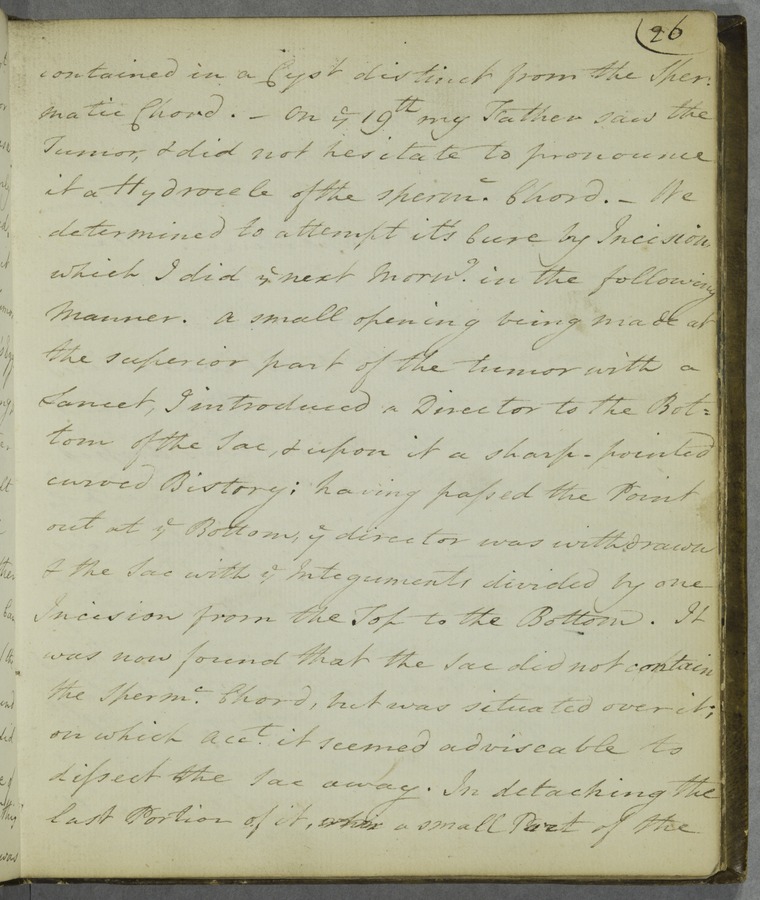 26
contained in a Cyst distinct from the Sper:
matic Chord. – On ẙ 19th my Father saw the
Tumor, & did not hesitate to pronounce
it a Hydrocele of the spermc. Chord. – We
determined to attempt it's Cure by Incision,
which I did ẙ next Morng. in the following
Manner. a small opening being made at
the superior part of the tumor with a
Lancet, I introduced a Director to the Bot=
tom of the Sac, & upon it a sharp-pointed
curved Bistory; having passed the Point
out at ẙ Bottom, ẙ director was withdrawn
& the Sac with ẙ Integuments divided by one
Incision from the Top to the Bottom. It
was now found that the Sac did not contain
the Spermc. Chord, but was situated over it;
on which acct. it seemed adviseable to
dissect the Sac away. In detaching the
last Portion of it, a small Part of the